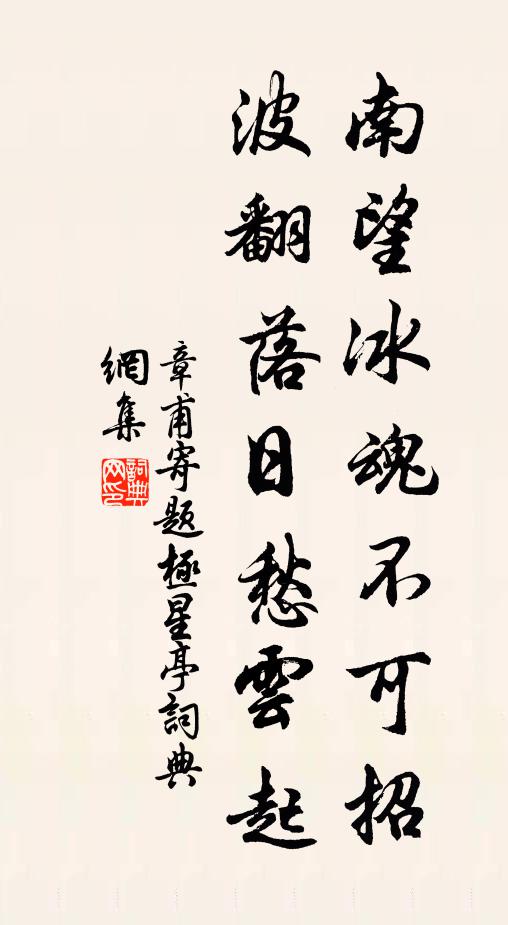 南望冰魂不可招
波翻落日愁雲起
章甫寄題極星亭詞典
網集
詞典
网印